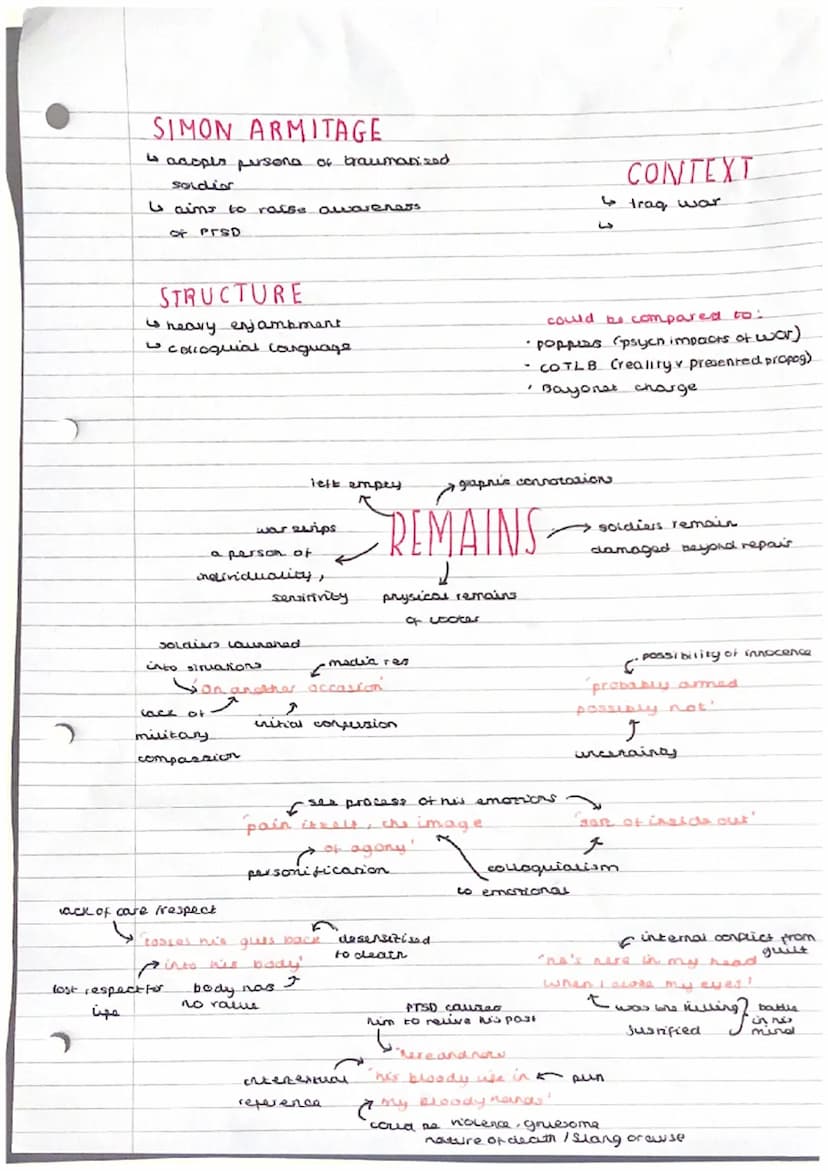 SIMON ARMITAGE
↳ adopts persona of traumatized
soldier
↳ aims to raise awareness
of PTSD
CONTEXT
↳ Iraq war
↳
STRUCTURE
↳ heavy enjambment
↳ colloquial language
could be compared to:
· poppies (psych impacts of war)
· COTLB (reality v presented propog)
· Bayonet charge
left empty
graphic connotations
war strips
a person of
individuality,
sensitivity
REMAINS
soldiers remain
damaged beyond repair
physical remains
of looter
soldiers launched
into situations
media res
'On another occasion'
lack of
military
compassion
initial confusion
possibility of innocence
'probably armed
possibly not'
uncertainty
see process of his emotions
'pain itself, the image
of agony'
personification
'sort of inside out'
colloquialism
to emotional
lack of care /respect
'tosses his guts back
into his body'
desensitised
to death
lost respect for
life
body has
no value
internal conflict from
guilt
'he's here in my head
when I close my eyes'
was the killing
justified
battle
in his
mind
PTSD causes
him to relive his past
'here and now
'his bloody life in
my bloody hands'
intertextual
reference
pun
could be violence, gruesome
nature of death / slang or curse